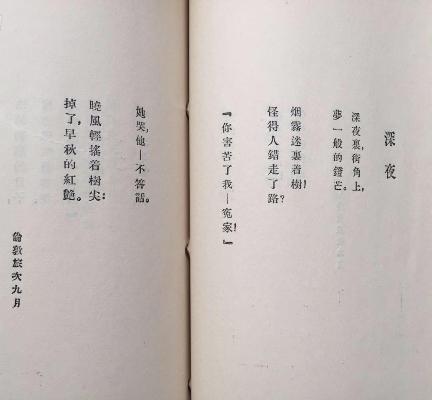 深夜
深夜裏，街角上，
夢一般的鐙芒。
烟霧迷裏着樹！
怪得人錯走了路？
『你害苦了我—寃家！』
她哭，他—不答話。
曉風輕搖着樹尖：
掉了，早秋的紅艷。
倫敦旅次九月